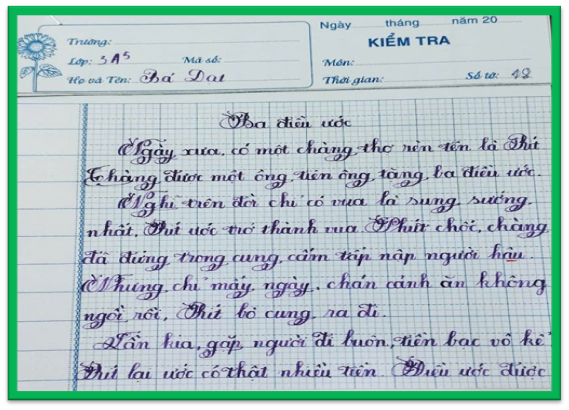 Ngày tháng năm 20
Trường:
KIỂM TRA
Lớp: 3A5 Mã số:
Môn:
Họ và Tên: Bá Đạt
Thời gian: Số tờ: 12
Ba điều ước
Ngày xưa, có một chàng thợ rèn tên là Rít
Chàng được một ông tiên ông, tặng ba điều ước.
Nghĩ trên đời chỉ có vua là sung sướng
nhất, Rít ước trở thành vua. Phút chốc, chàng
đã đứng trong cung cấm tấp nập người hầu.
Nhưng, chỉ mấy ngày, chán cảnh ăn không
ngồi rồi, Rít bỏ cung ra đi.
Lần kia, gặp người đi buôn, tiền bạc vô kể
Rít lại ước có thật nhiều tiền. Điều ước được